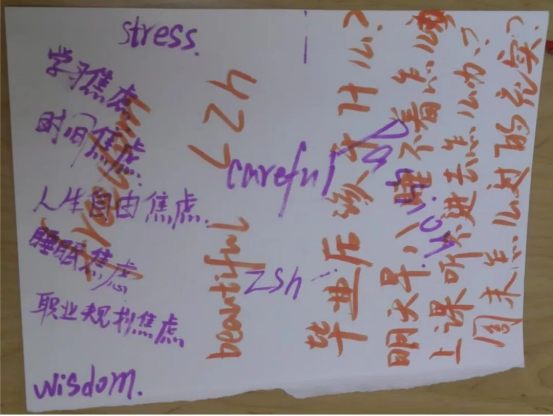 stress.
学习焦虑
时间焦虑.
人生自由焦虑.
睡眠焦虑
职业规划焦虑
wisdom.
beautiful
careful
zsh
毕业后该干什么?
明天早八睡不着怎么
上课听不进去怎么办?
周末怎么过的充实?